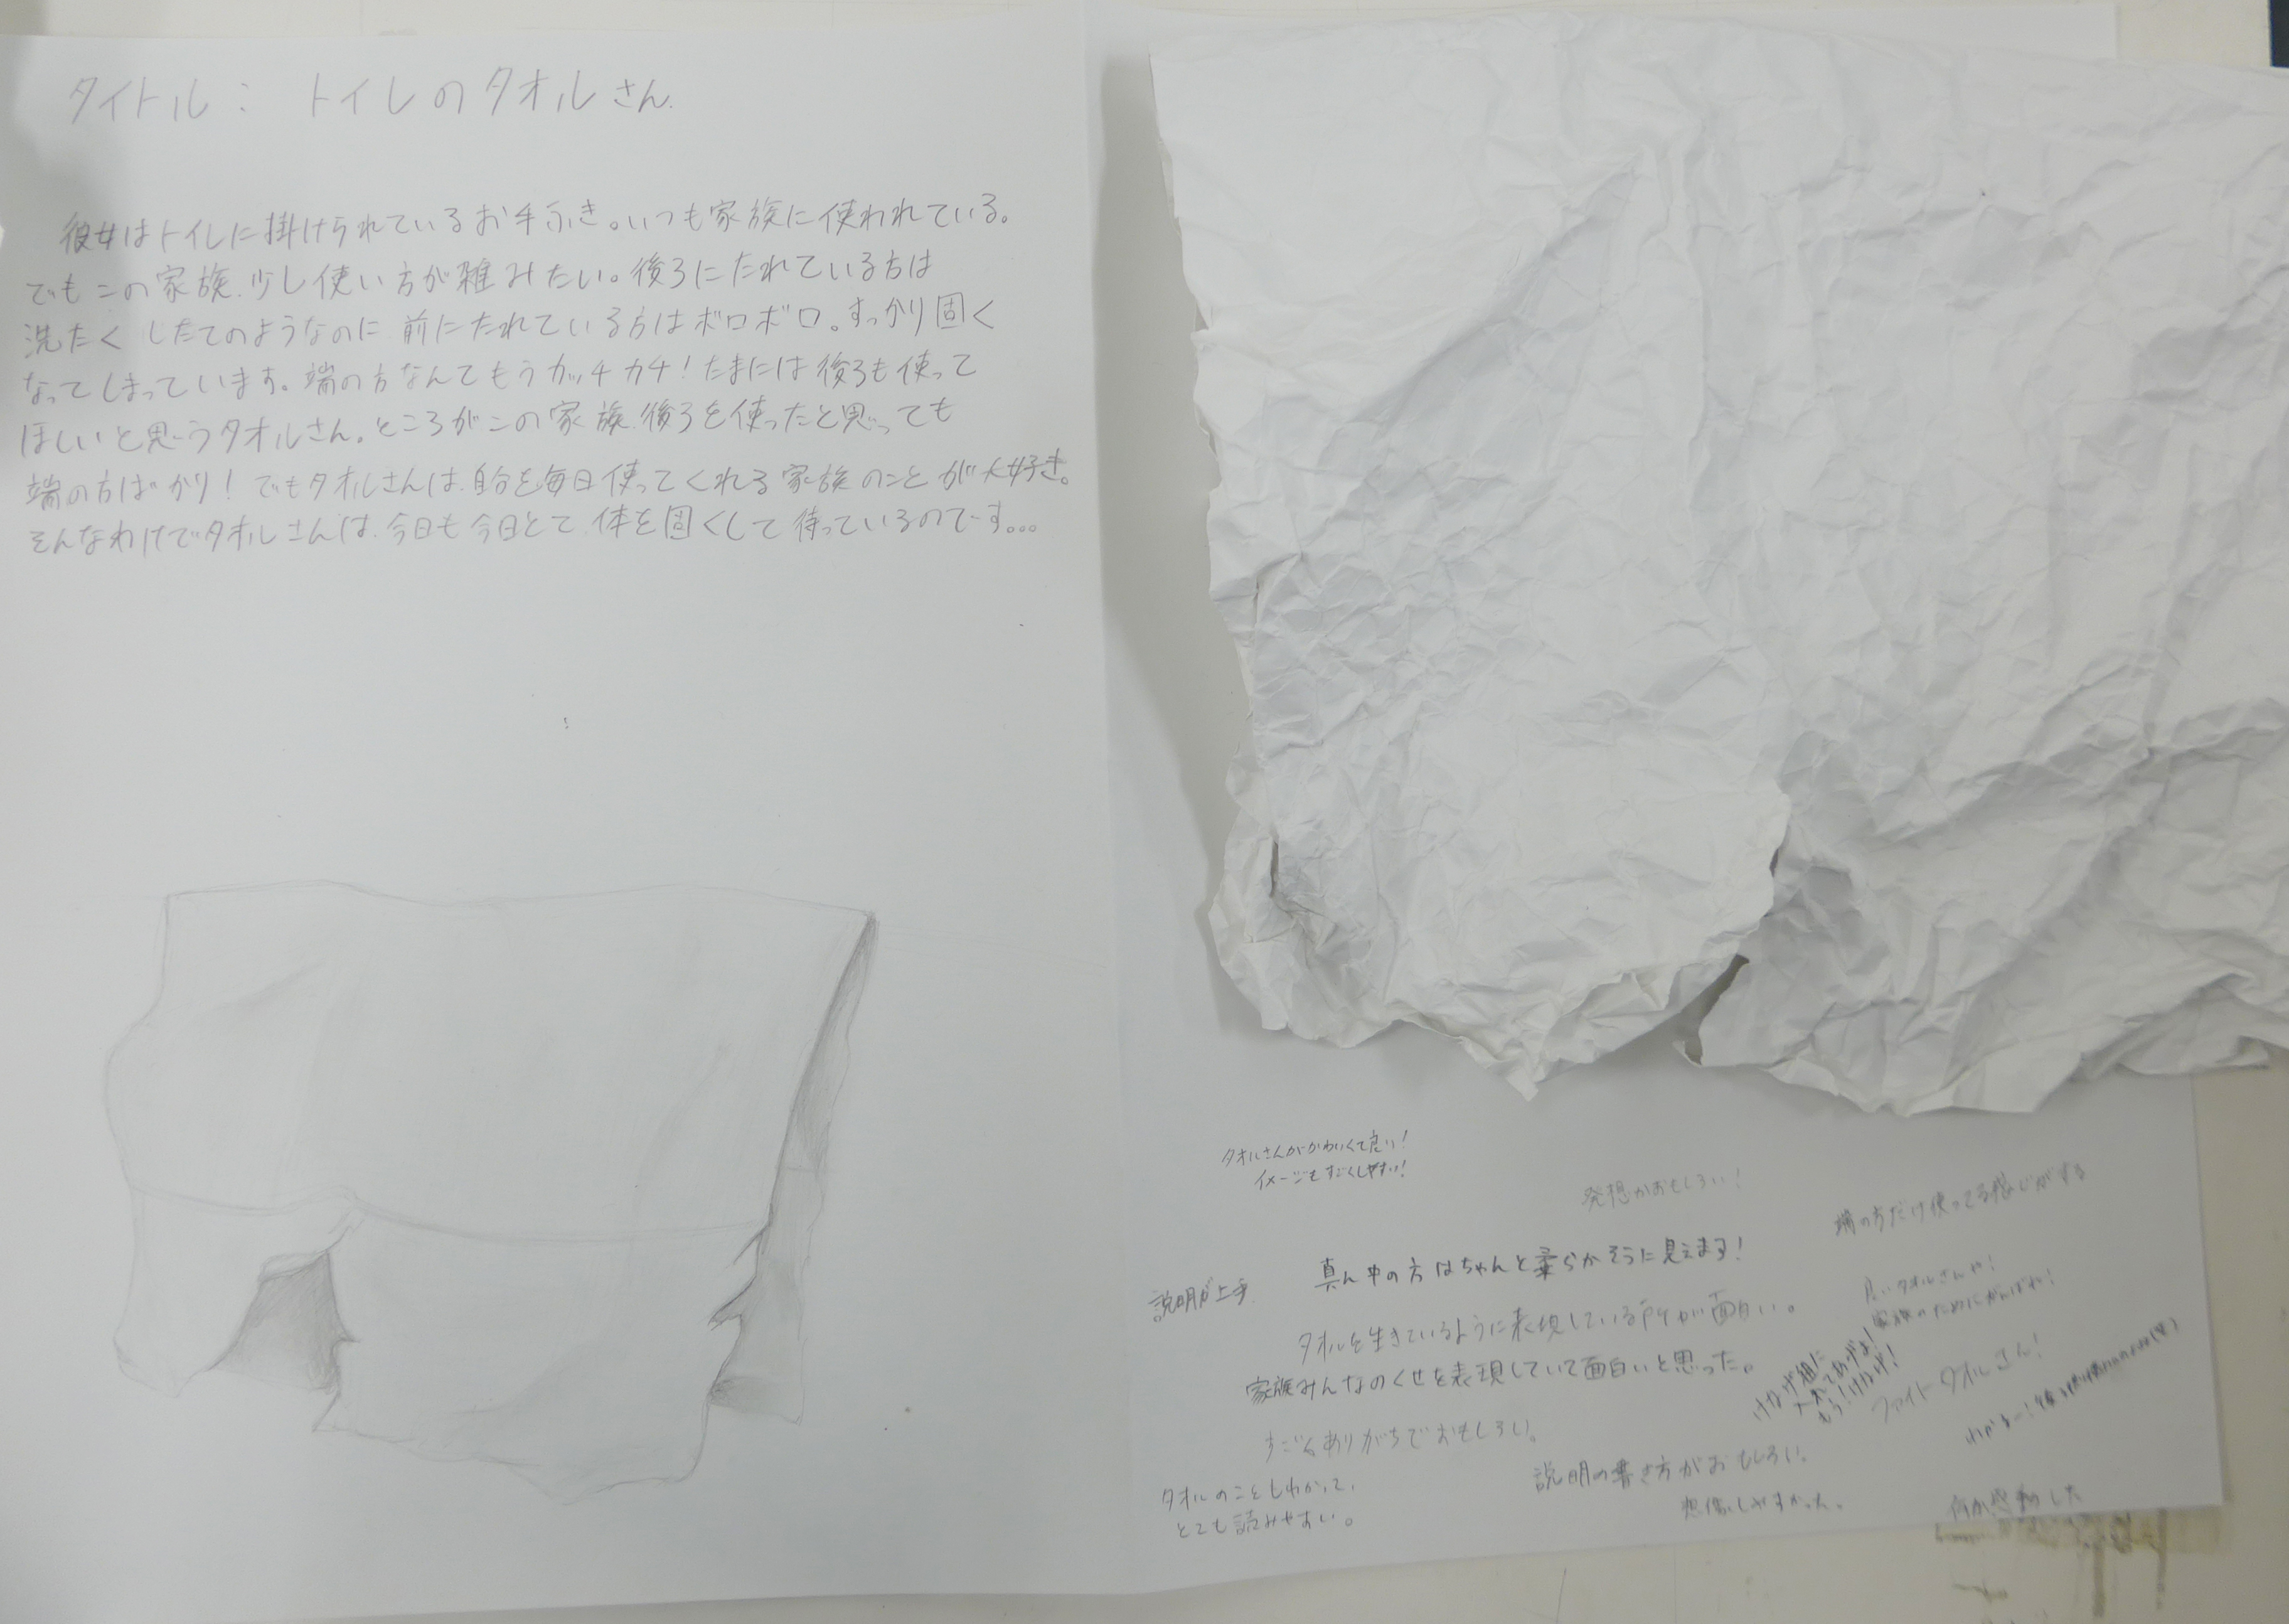 タイトル： トイレのタオルさん
彼女はトイレに掛けられているお手ふき。いつも家族に使われている。
でもこの家族、少し使い方が雑みたい。後ろにたれている方は
洗たくしたてのようなのに前にたれている方はボロボロ。すっかり固く
なってしまっています。端の方なんてもうカッチカチ！たまには後ろも使って
ほしいと思うタオルさん。ところがこの家族、後ろを使ったと思っても
端の方ばかり！でもタオルさんは、自分を毎日使ってくれる家族のことが大好き。
そんなわけでタオルさんは、今日も今日とて、体を固くして待っているのです...
タオルさんがかわいくて良い！
イメージもすごくしやすい！
発想がおもしろい！
端の方だけ使ってる感じがする
真ん中の方はちゃんと柔らかそうに見えます！
説明が上手
良いタオルさんや！
家族のためにがんばれ！
タオルを生きているように表現している所が面白い。
家族みんなのくせを表現していて面白いと思った。
けなげ組に
入れてあげよ！
もう！けなげ！
ファイト タオルさん！
わかるー！
すごくありがちでおもしろい。
説明の書き方がおもしろい。
想像しやすかった。
タオルのこともわかって、
とても読みやすい。
何か感動した